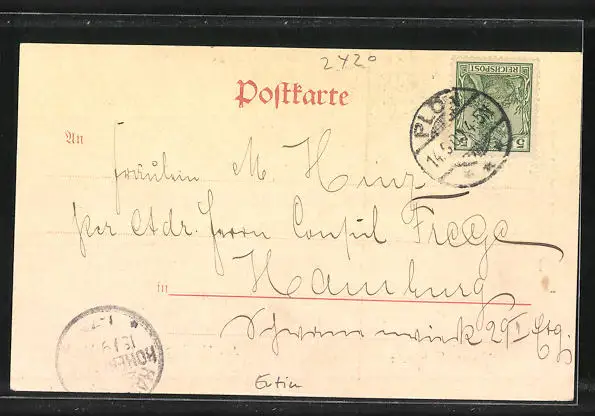 2420
Postkarte
REICHSPOST
5
PLÖN
An
Fräulein M. Hinz
per Adr. Herrn Consul Frege
in Hamburg
Schwanenwieck 29 I Etg.
Eutin